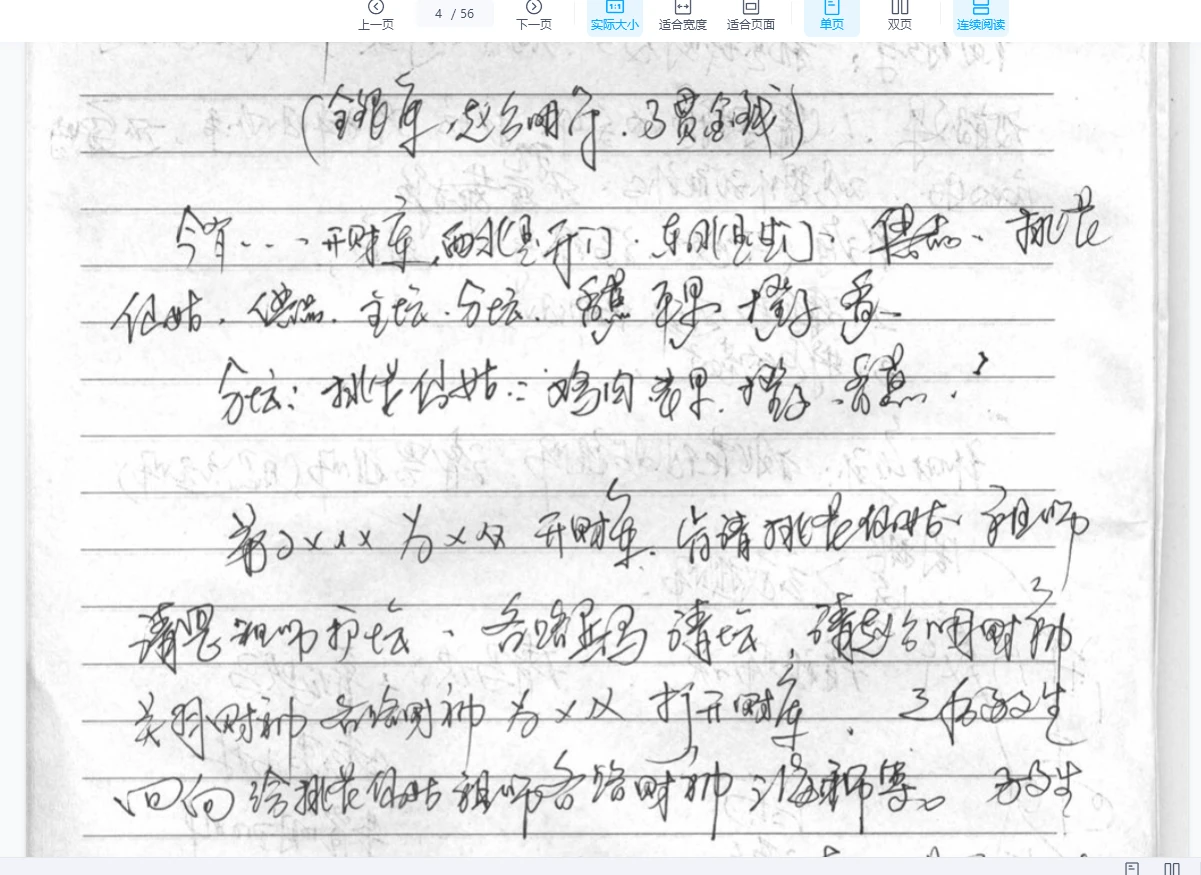 上一页 4 / 56 下一页 实际大小 适合宽度 适合页面 单页 双页 连续阅读
(金银库、赵公明库、马贾金钱)
今宵... 开财库,西北是开门、东北是生门、供品、桃花
仙姑、供品、主坛、分坛、香蕉 苹果 橙子 香
分坛: 桃花仙姑: 鸡肉 苹果 橙子、香蕉.
弟子xxx 为xx 开财库. 肯请桃花仙姑、祖师
请恩祖师护坛、各路兵马请坛,请赵公明财神
关羽财神 各路财神 为xx 打开财库. 放生
回向给桃花仙姑祖师各路财神 放生